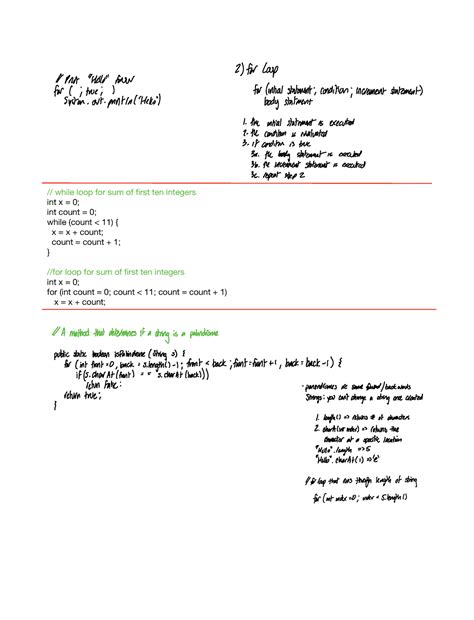 // Print "Hello" forever
for ( ; true; )
System.out.println("Hello")
2) for loop
for (initial statement; condition; increment statement)
body statment
1. the initial statement is executed
2. the condition is evaluated
3. if condition is true
3a. the body statement is executed
3b. the increment statement is executed
3c. repeat step 2
// while loop for sum of first ten integers
int x = 0;
int count = 0;
while (count < 11) {
x = x + count;
count = count + 1;
}
//for loop for sum of first ten integers
int x = 0;
for (int count = 0; count < 11; count = count + 1)
x = x + count;
// A method that determines if a string is a palindrome
public static boolean isPalindrome (String s) {
for (int front = 0, back = s.length() - 1; front < back; front = front + 1, back = back - 1) {
if (s.charAt(front) == s.charAt(back)))
return false;
return true;
}
- are same forward/backwards
Strings: you can't change a string once created
1. length() => returns # of characters
2. charAt(int index) => returns the
character at a specific location
"Hello".length => 5
"Hello".charAt(1) => 'e'
// for loop that runs through length of string
for (int index = 0; index < s.length()